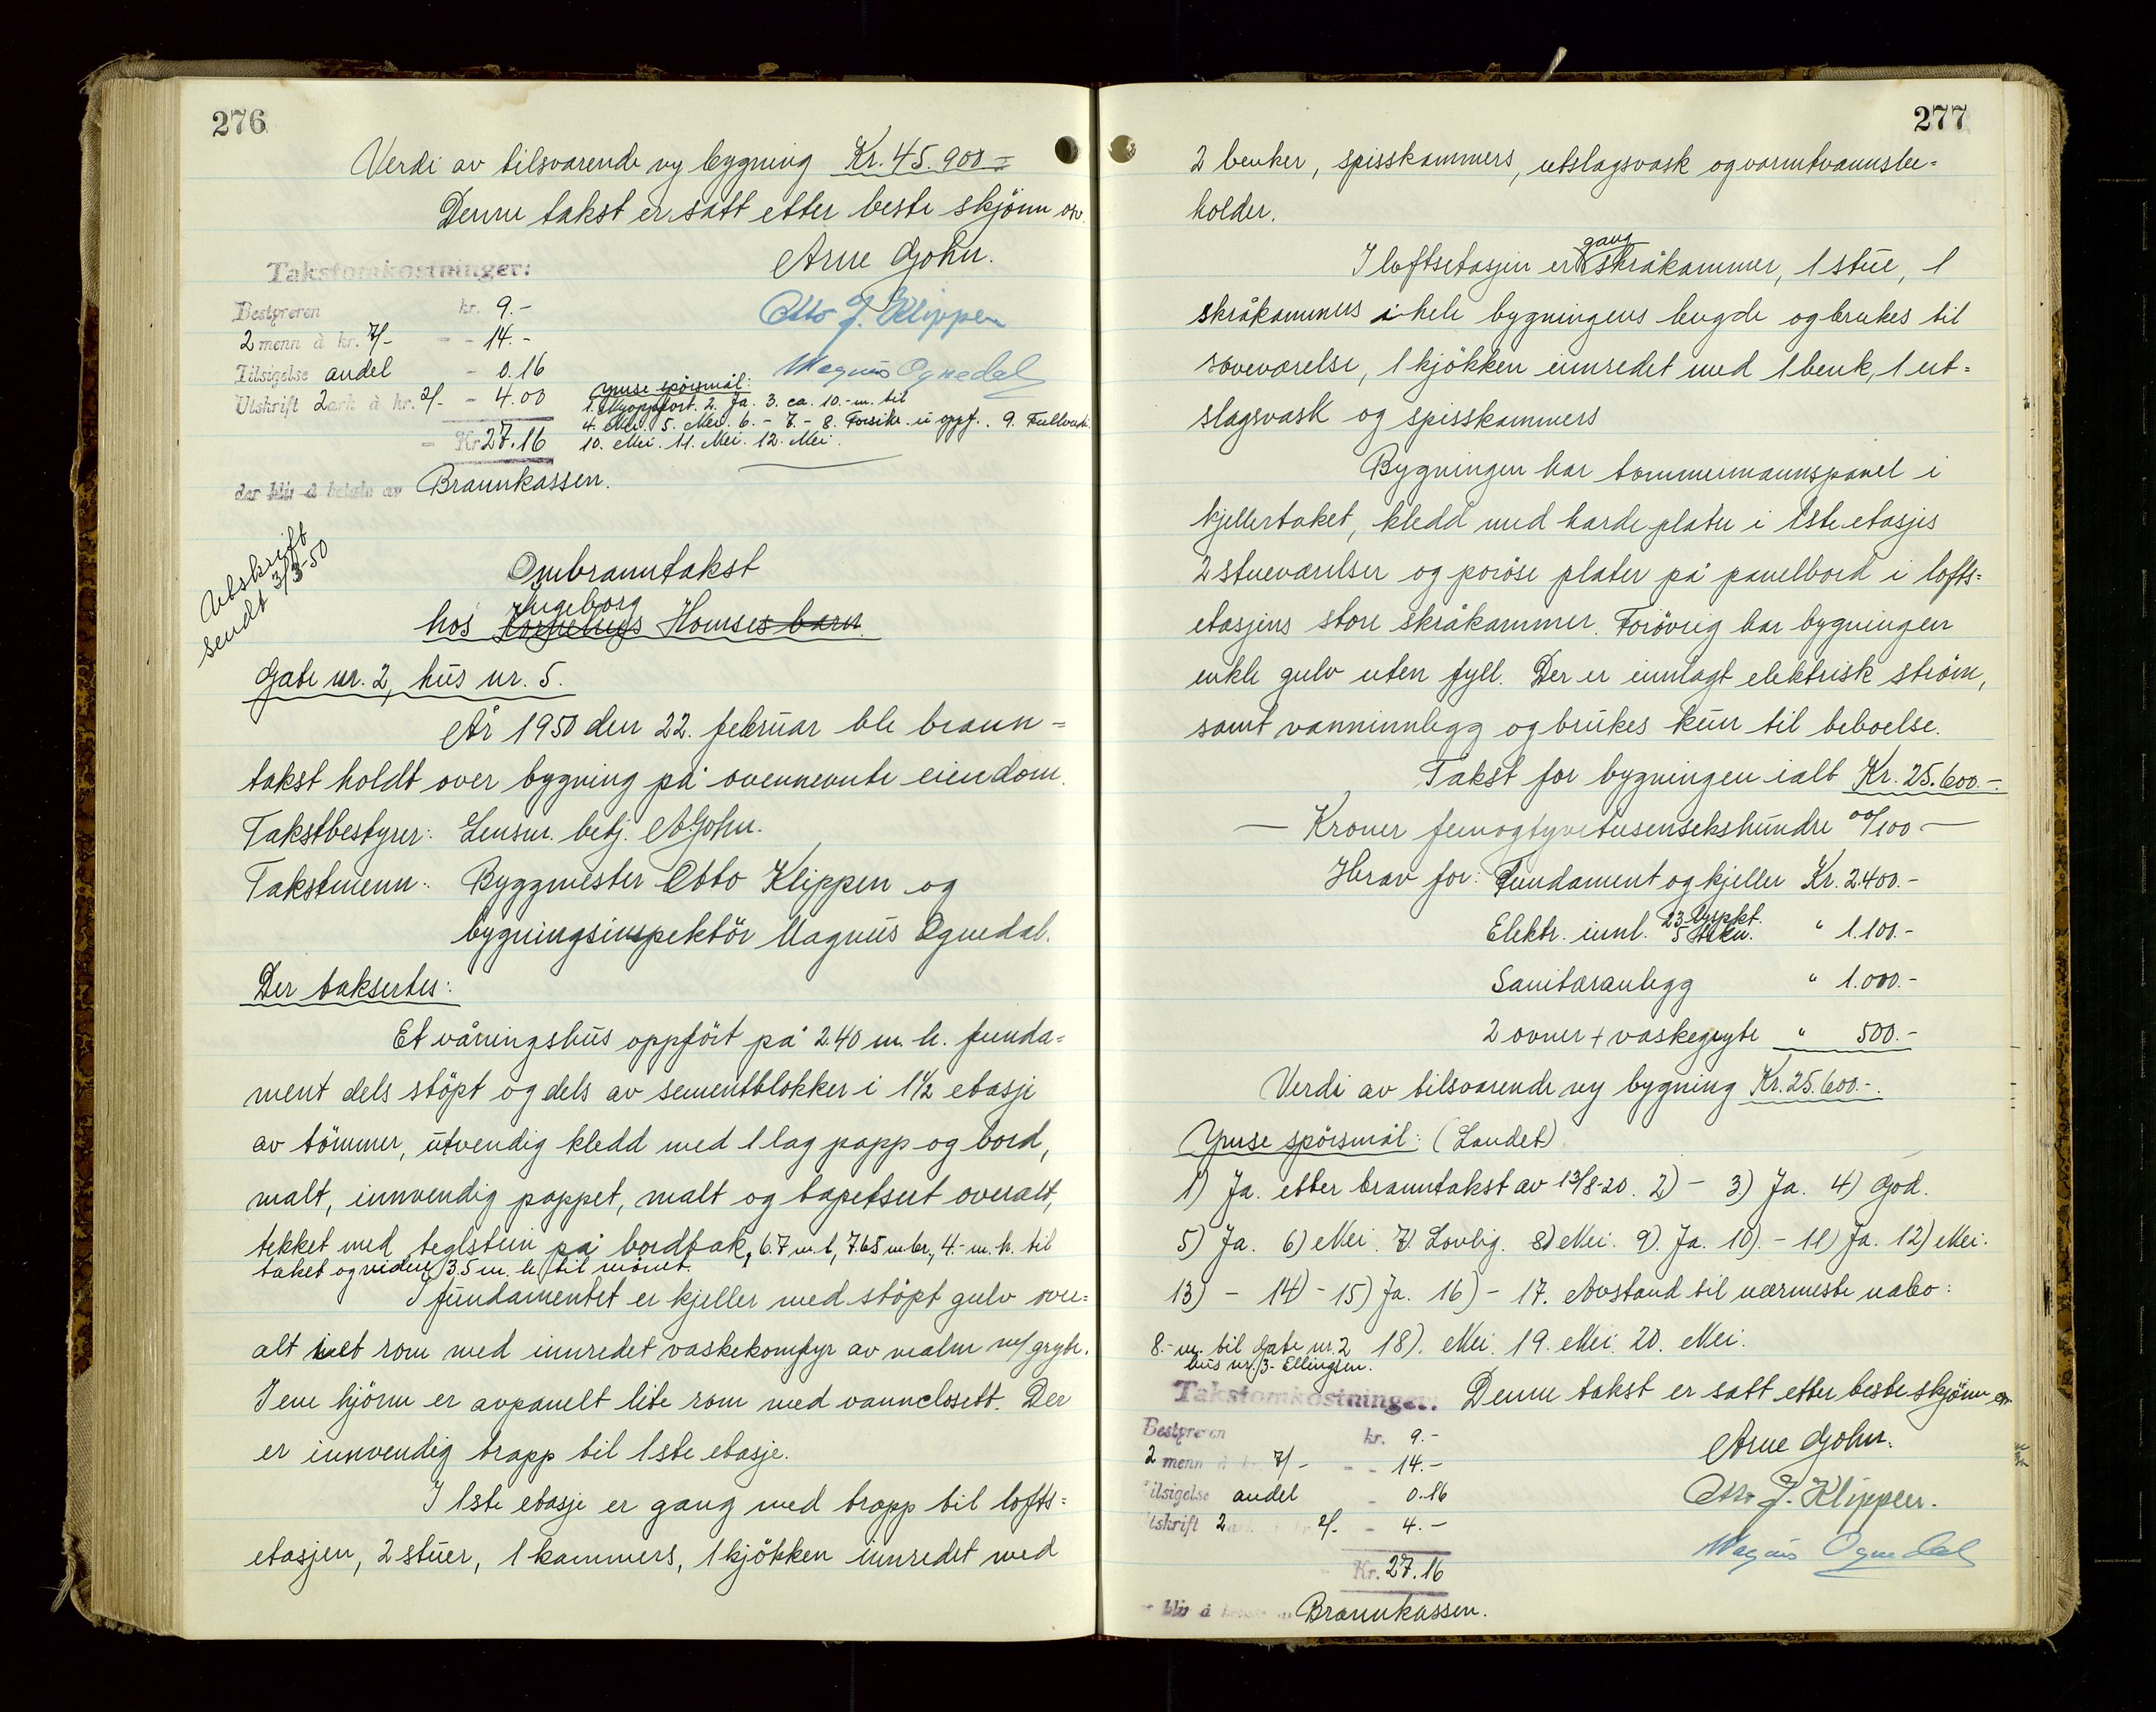 276
Verdi av tilsvarende ny bygning Kr. 45.900=
Denne takst er satt etter beste skjönn osv.
Arne Gjohn.
Otto J. Klippen
Magnus Ognedal
Takstomkostninger:
Bestyreren kr. 9.-
2 menn à kr. 7/- - - 14.-
Tilsigelse andel - 0.16
Utskrift 2 ark à kr. 2/- - 4.00
= Kr 27.16
der blir å betale av Brannkassen.
Ymse spörsmål:
1. Nyoppfört. 2. Ja. 3. ca. 10.-m. til
4. Nei. 5. Nei. 6. - 7. - 8. Forsikr. u. oppf. 9. Fullverdi.
10. Nei. 11. Nei. 12. Nei.
Utskrift
sendt 3/3-50
Ombranntakst
Ingeborg
hos Homses barn
Gate nr. 2, hus nr. 5.
År 1950 den 22. februar ble brann=
takst holdt over bygning på ovennevnte eiendom.
Takstbestyrer: Lensm. betj. A Gjohn.
Takstmenn: Byggmester Otto Klippen og
bygningsinspektör Magnus Ognedal.
Der taksertes:
Et våningshus oppfört på 2.40 m. h. funda=
ment dels stöpt og dels av sementblokker i 1½ etasje
av tömmer, utvendig kledd med 1 lag papp og bord,
malt, innvendig pappet, malt og tapetsert overalt,
tekket med teglstein på bordtak, 6.7 m. l, 7.65 m br., 4.- m. h. til
taket og videre 3.5 m. h. til mönet.
I fundamentet er kjeller med stöpt gulv over=
alt i et rom med innredet vaskekomfyr av malm m/ gryte.
I ene hjörne er avpanelt lite rom med vannclosett. Der
er innvendig trapp til 1ste etasje.
I 1ste etasje er gang med trapp til lofts=
etasjen, 2 stuer, 1 kammers, 1 kjökken innredet med
277
2 benker, spisskammers, utslagsvask og varmtvannsbe=
holder.
gang
I loftsetasjen er skråkammer, 1 stue, 1
skråkammers i hele bygningens lengde og brukes til
soveværelse, 1 kjökken innredet med 1 benk, 1 ut=
slagsvask og spisskammers
Bygningen har tommermannspanel i
kjellertaket, kledd med harde plater i 1ste etasjes
2 stueværelser og poröse plater på panelbord i lofts=
etasjens store skråkammer. Forövrig har bygningen
enkle gulv uten fyll. Der er innlagt elektrisk ström,
samt vanninnlegg og brukes kun til beboelse.
Takst for bygningen ialt Kr. 25.600.-
- Kroner femogtyvetusensekshundre 00/100 -
Herav for: Fundament og kjeller Kr. 2.400.-
Elektr. innl. 23 lyspkt. 5 stikk. " 1.100.-
Sanitæranlegg " 1.000.-
2 ovner + vaskegryte " 500.-
Verdi av tilsvarende ny bygning Kr. 25.600.-
Ymse spörsmål: (Landet)
1) Ja. etter branntakst av 13/8-20. 2) - 3) Ja. 4) God.
5) Ja. 6) Nei. 7) Lovlig. 8) Nei. 9). Ja. 10). - 11) Ja. 12) Nei.
13) - 14) - 15) Ja. 16) - 17. Avstand til nærmeste nabo:
8.- m. til Gate nr. 2 18). Nei. 19. Nei. 20. Nei.
hus nr. 3- Ellingsen.
Takstomkostninger: Denne takst er satt etter beste skjönn osv.
Bestyreren kr. 9.-
2 menn à kr. 7/- - - 14.-
Tilsigelse andel - 0.16
Utskrift 2 ark à kr 2/- - 4.-
Kr. 27.16
blir å betale av Brannkassen.
Arne Gjohn.
Otto J. Klippen.
Magnus Ognedal